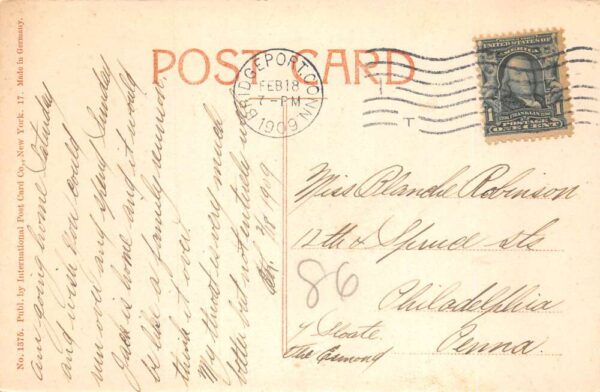 POST CARD
BRIDGEPORT, CONN.
FEB 18
7-PM
1909
T
UNITED STATES OF AMERICA
1
FRANKLIN
POSTAGE
ONE CENT
1
No. 1375. Publ. by International Post Card Co., New York. 17. Made in Germany.
am going home Saturday
and wish you could
run over and spend Sunday
is home and it would
be like a family reunion.
think it over.
My throat is very much
better but not entirely
2/18 1909
Miss Blanche Robinson
12th & Spruce Sts
Philadelphia
Penna.
86
% Sloate
The